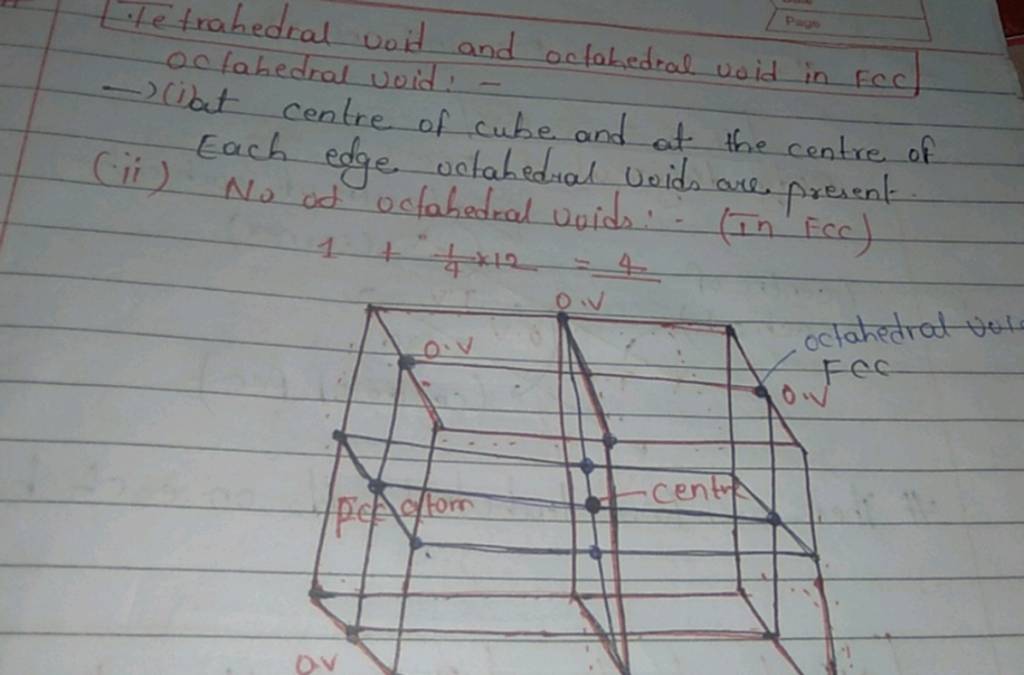 Page
Tetrahedral void and octahedral void in FCC
octahedral void: -
→ (i) at centre of cube and at the centre of
Each edge octahedral voids are present.
(ii) No of octahedral voids: - (In FCC)
1 + 1/4 × 12 = 4
O.V
O.V
octahedral void
FCC
O.V
centre
atom
O.V